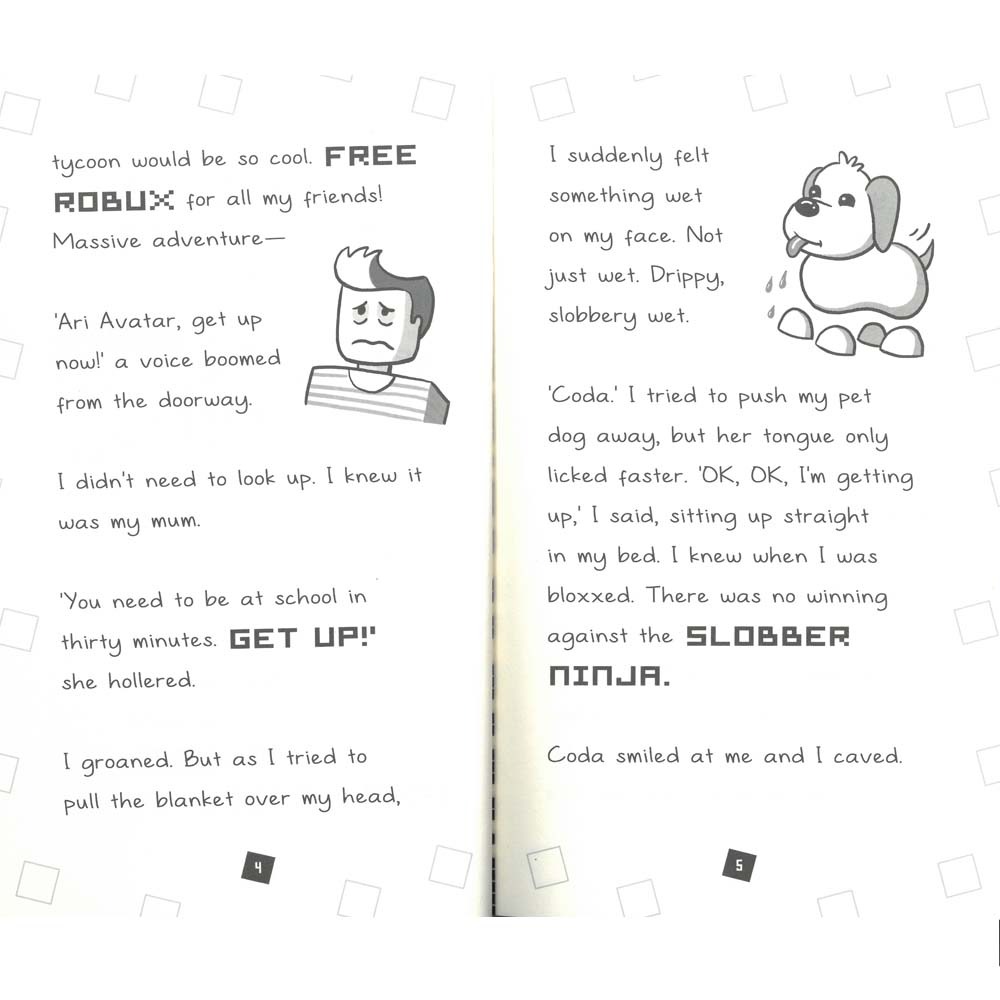 tycoon would be so cool. FREE
ROBUX for all my friends!
Massive adventure—
'Ari Avatar, get up
now!' a voice boomed
from the doorway.
I didn't need to look up. I knew it
was my mum.
'You need to be at school in
thirty minutes. GET UP!'
she hollered.
I groaned. But as I tried to
pull the blanket over my head,
4
I suddenly felt
something wet
on my face. Not
just wet. Drippy,
slobbery wet.
'Coda.' I tried to push my pet
dog away, but her tongue only
licked faster. 'OK, OK, I'm getting
up,' I said, sitting up straight
in my bed. I knew when I was
bloxxed. There was no winning
against the SLOBBER
NINJA.
Coda smiled at me and I caved.
5